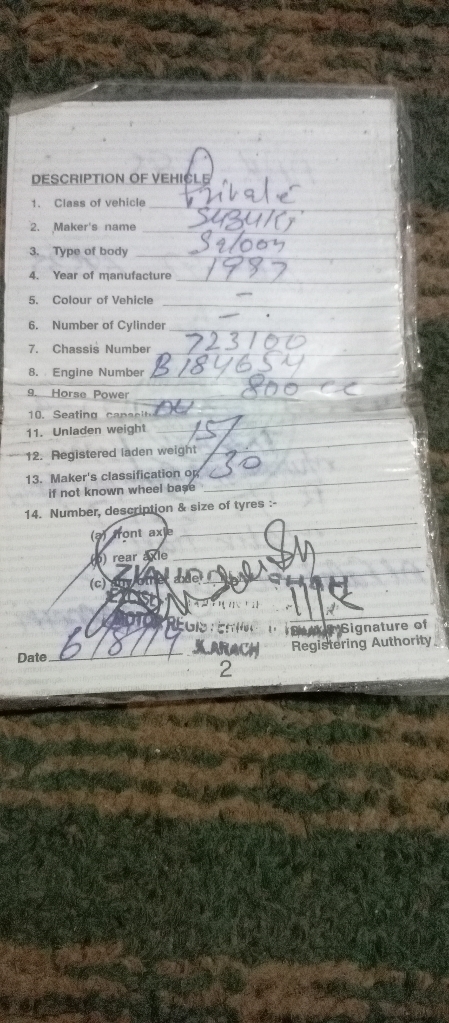 DESCRIPTION OF VEHICLE
1. Class of vehicle Private
2. Maker's name Suzuki
3. Type of body Saloon
4. Year of manufacture 1987
5. Colour of Vehicle -
6. Number of Cylinder -
7. Chassis Number 723100
8. Engine Number B184654
9. Horse Power 800 cc
10. Seating capacity 04
11. Unladen weight 15/
12. Registered laden weight /30
13. Maker's classification or
if not known wheel base
14. Number, description & size of tyres :-
(a) front axle
(b) rear axle
(c) any other axle
MOTOR REGISTERING
Signature of
Date 6/8/14 KARACHI Registering Authority
2